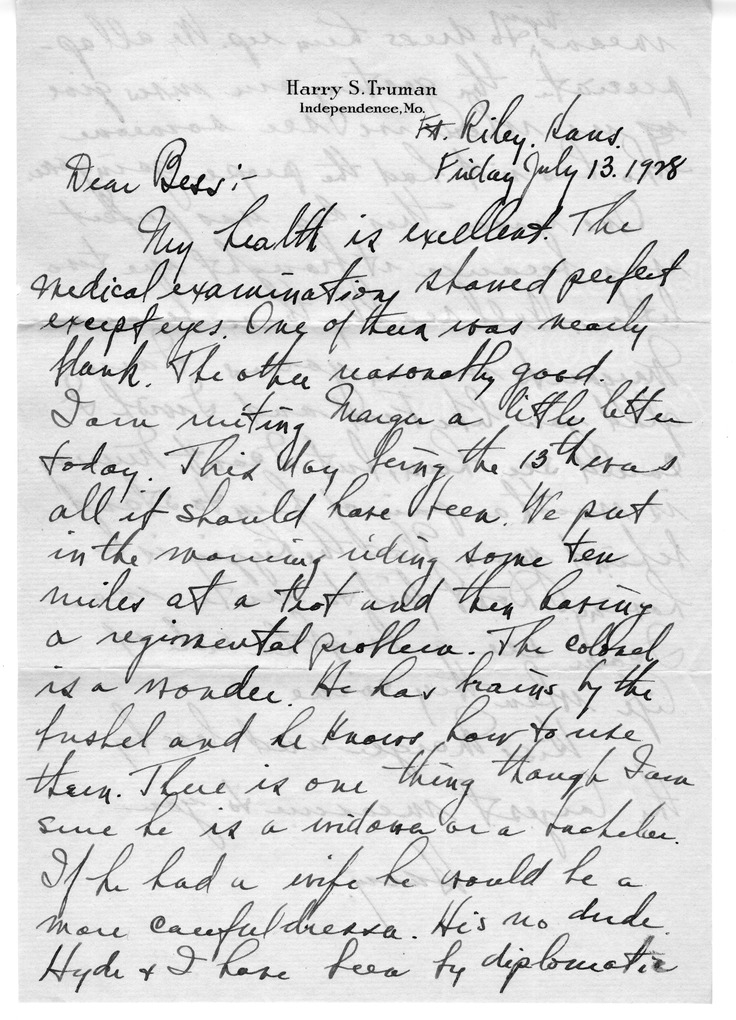 Harry S. Truman
Independence, Mo.
Ft. Riley, Kans.
Friday July 13. 1928
Dear Bess:-
My health is excellent. The
medical examination showed perfect
except eyes. One of them was nearly
blank. The other reasonably good.
I am writing Margie a little letter
today. This day being the 13th was
all it should have been. We put
in the morning riding some ten
miles at a trot and then having
a regimental problem. The colonel
is a wonder. He has brains by the
bushel and he knows how to use
them. There is one thing though I am
sure he is a widower or a bachelor.
If he had a wife he would be a
more careful dresser. His no dude.
Hyde & I have been by diplomatic